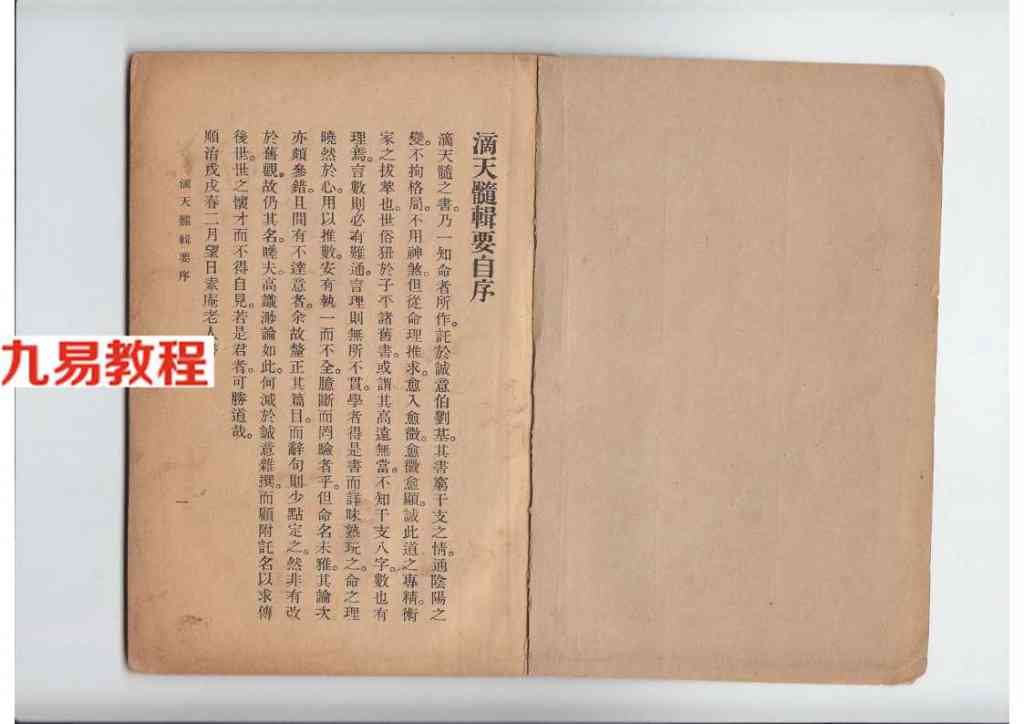 滴天髓輯要自序
滴天髓之書。乃一知命者所作。託於誠意伯劉基。其書窮干支之情。通陰陽之
變。不拘格局。不用神煞。但從命理推求。愈入愈微。愈微愈顯。誠此道之專精。術
家之拔萃也。世俗狃於子平諸舊書。或謂其高遠無當。不知干支八字。數也。有
理焉。言數則必有難通。言理則無所不貫。學者得是書而詳味熟玩之。命之理
曉然於心。用以推數。安有執一而不全。臆斷而罔驗者乎。但命名未雅。其論次
亦頗參錯。且間有不達意者。余故釐正其篇目。而辭句則少點定之。然非有改
於舊觀。故仍其名。嗟夫高識渺論如此。何減於誠意雜撰。而顧附託名以求傳
後世。世之懷才而不得自見。若是君者。可勝道哉。
順治戊戌春二月望日素庵老人
滴天髓輯要序
一
九易教程